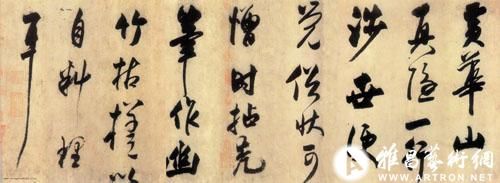 黄華山
真隱一行
涉世便
覺俗狀可
憎時拈禿
筆作幽
竹枯槎以
自料理
耳
雅昌藝術網
WWW.ARTRON.NET